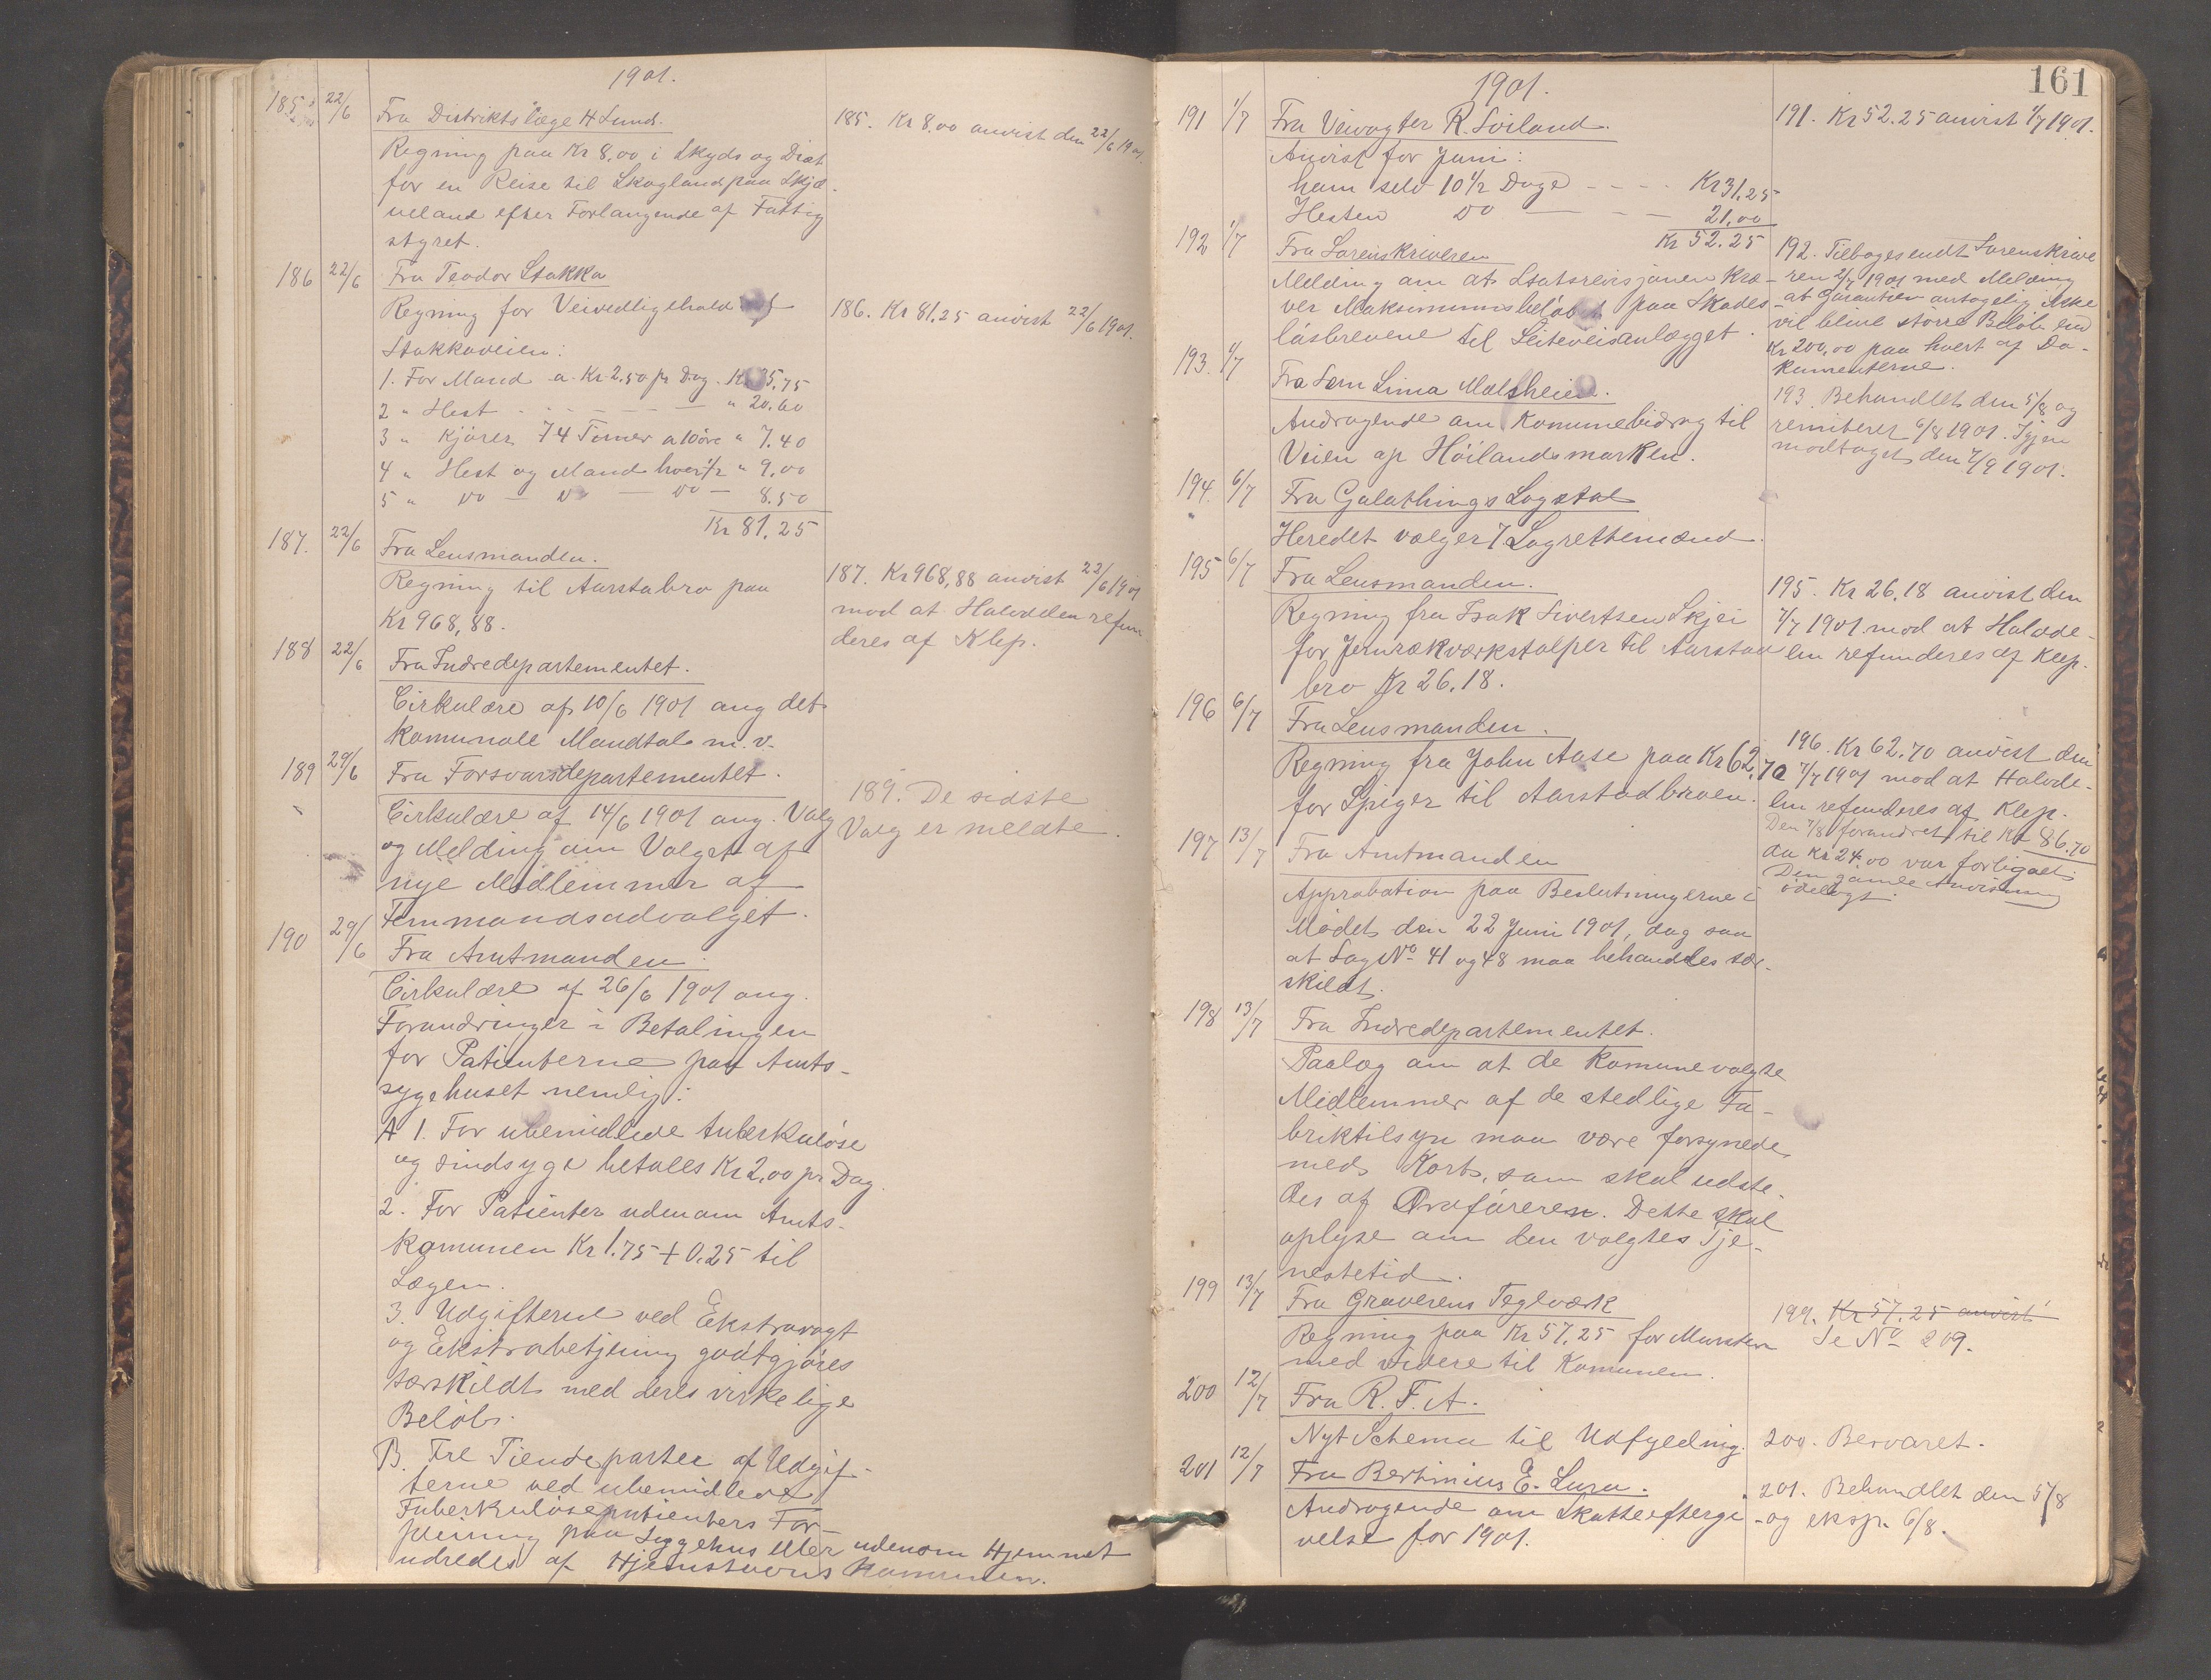 1901.
185 22/6 Fra Distriktslæge H Lund.
Regning paa Kr 8.00 i Skyds og Diæt
for en Reise til Skogland paa Skjæ-
veland efter Forlangende af Fattig
styret.
185. Kr 8.00 anvist den 22/6 1901.
186 22/6 Fra Teodor Stokka
Regning for Veivedligehold af
Stokkaveien:
1. For Mand a Kr 2.50 pr Dag. Kr 35.75
2 " Hest - - - - - - " 20.60
3 " Kjører 74 Timer a 10 øre " 7.40
4 " Hest og Mand hver 1/2 " 9.00
5 " do — do — do — 8.50
Kr 81.25
186. Kr 81.25 anvist 22/6 1901.
187. 22/6 Fra Lensmanden.
Regning til Aarstabro paa
Kr 968,88.
187. Kr 968,88 anvist 22/6 1901
mod at Halvdelen refun
deres af Klep.
188 22/6 Fra Indredepartementet.
Cirkulære af 10/6 1901 ang det
Komunale Mandtal m.v.
189 29/6 Fra Forsvarsdepartementet.
Cirkulære af 14/6 1901 ang. Valg
og Melding om Valget af
nye Medlemmer af
Femmandsudvalget.
189. De sidste
Valg er meldte.
190 29/6 Fra Amtmanden.
Cirkulære af 26/6 1901 ang.
Forandringer i Betalingen
for Patienterne paa Amts-
sygehuset nemlig:
A 1. For ubemidlede tuberkuløse
og sindsyge betales Kr 2,00 pr Dag.
2. For Patienter udenom Amts-
komunen Kr 1.75 + 0.25 til
Lægen.
3. Udgifterne ved Ekstravagt
og Ekstrabetjening godtgjøres
særskildt med deres virkelige
Beløb.
B. Fire Tiendeparter af Udgif-
terne ved ubemidlede
Tuberkuløsepatienters For-
pleining paa Sygehus eller udenom Hjemmet
udredes af Hjemstavns Komunen.
161
1901.
191 1/7 Fra Veivogter R. Sviland.
Anvist for Juni:
ham selv 10 1/2 Dage - - - - Kr 31,25
Hesten do — - - — 21,00
Kr 52.25
191. Kr 52.25 anvist 1/7 1901.
192 1/7 Fra Sorenskriveren
Melding om at Statsrevisjonen Kræ-
ver Maksimumsbeløbet paa Skades-
løsbrevene til Leiteveisanlægget.
192. Tilbagesendt Sorenskrive
ren 2/7 1901 med Melding
at Garantien antagelig ikke
vil blive større Beløb end
Kr 200,00 paa hvert af Do-
kumenterne.
193. 1/7 Fra Søm Lima Malsheim.
Andragende om Komunebidrag til
Veien op Høilandsmarken.
193. Behandlet den 5/8 og
remiteret 6/8 1901. Igjen
modtaget den 7/9 1901.
194. 6/7 Fra Gulathings Lagstol
Heredet vælger 7 Lagrettemænd.
195 6/7 Fra Lensmanden.
Regning fra Isak Sivertsen Skjei
for Jernrækværkstolper til Aarstad
bro Kr 26.18.
195. Kr 26.18 anvist den
7/7 1901 mod at Halvde-
len refunderes af Klep.
196 6/7 Fra Lensmanden.
Regning fra John Aase paa Kr 62,70
for Spiger til Aarstadbroen.
196. Kr 62.70 anvist den
7/7 1901 mod at Halvde-
len refunderes af Klep.
Den 7/8 forandret til Kr 86.70
da Kr 24.00 var forligaet.
Den gamle Anvisning
ødelagt.
197 13/7 Fra Amtmanden
Approbation paa Beslutningerne i
Mødet den 22 Juni 1901, dog saa
at Sag No 41 og 48 maa behandles sær-
skildt.
198 13/7 Fra Indredepartementet.
Paalæg om at de Komunevalgte
Medlemmer af de stedlige Fa-
briktilsyn maa være forsynede
med Kort, som skal udste-
des af Ordføreren. Dette skal
oplyse om den valgtes Tje-
nestetid.
199 13/7 Fra Graverens Teglværk
Regning paa Kr 57.25 for Mursten
med videre til Komunen.
199. Kr 57.25 anvist
Se No 209.
200 12/7 Fra R. F. A.
Nyt Schema til Udfylding.
200. Besvaret.
201 12/7 Fra Bertinius E. Lura.
Andragende om Skatteeftergi
velse for 1901.
201. Behandlet den 5/8
og eksp. 6/8.